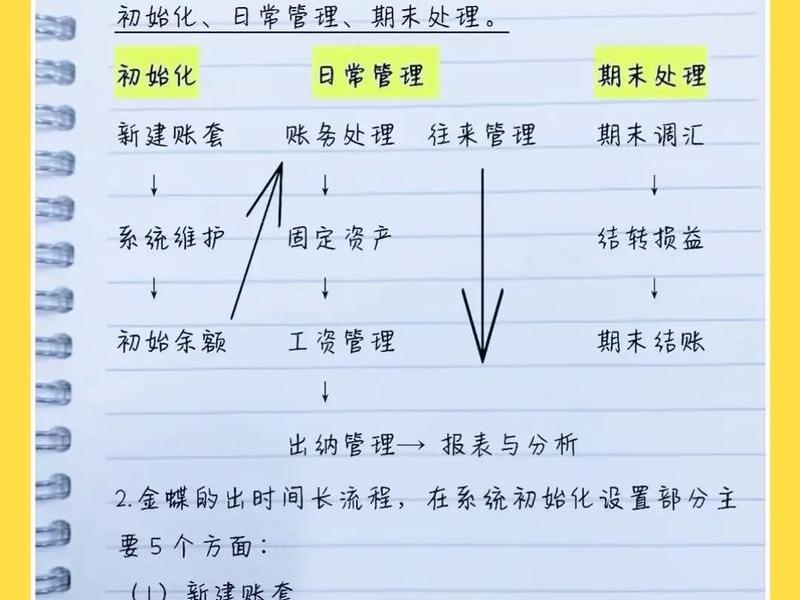 初始化、日常管理、期末处理。
初始化 日常管理 期末处理
新建账套 账务处理 往来管理 期末调汇
↓ ↓ ↓
系统维护 固定资产 结转损益
↓ ↓ ↓
初始余额 工资管理 期末结账
↓
出纳管理→ 报表与分析
2.金蝶的出时间长流程，在系统初始化设置部分主
要5个方面：
（1）新建账套